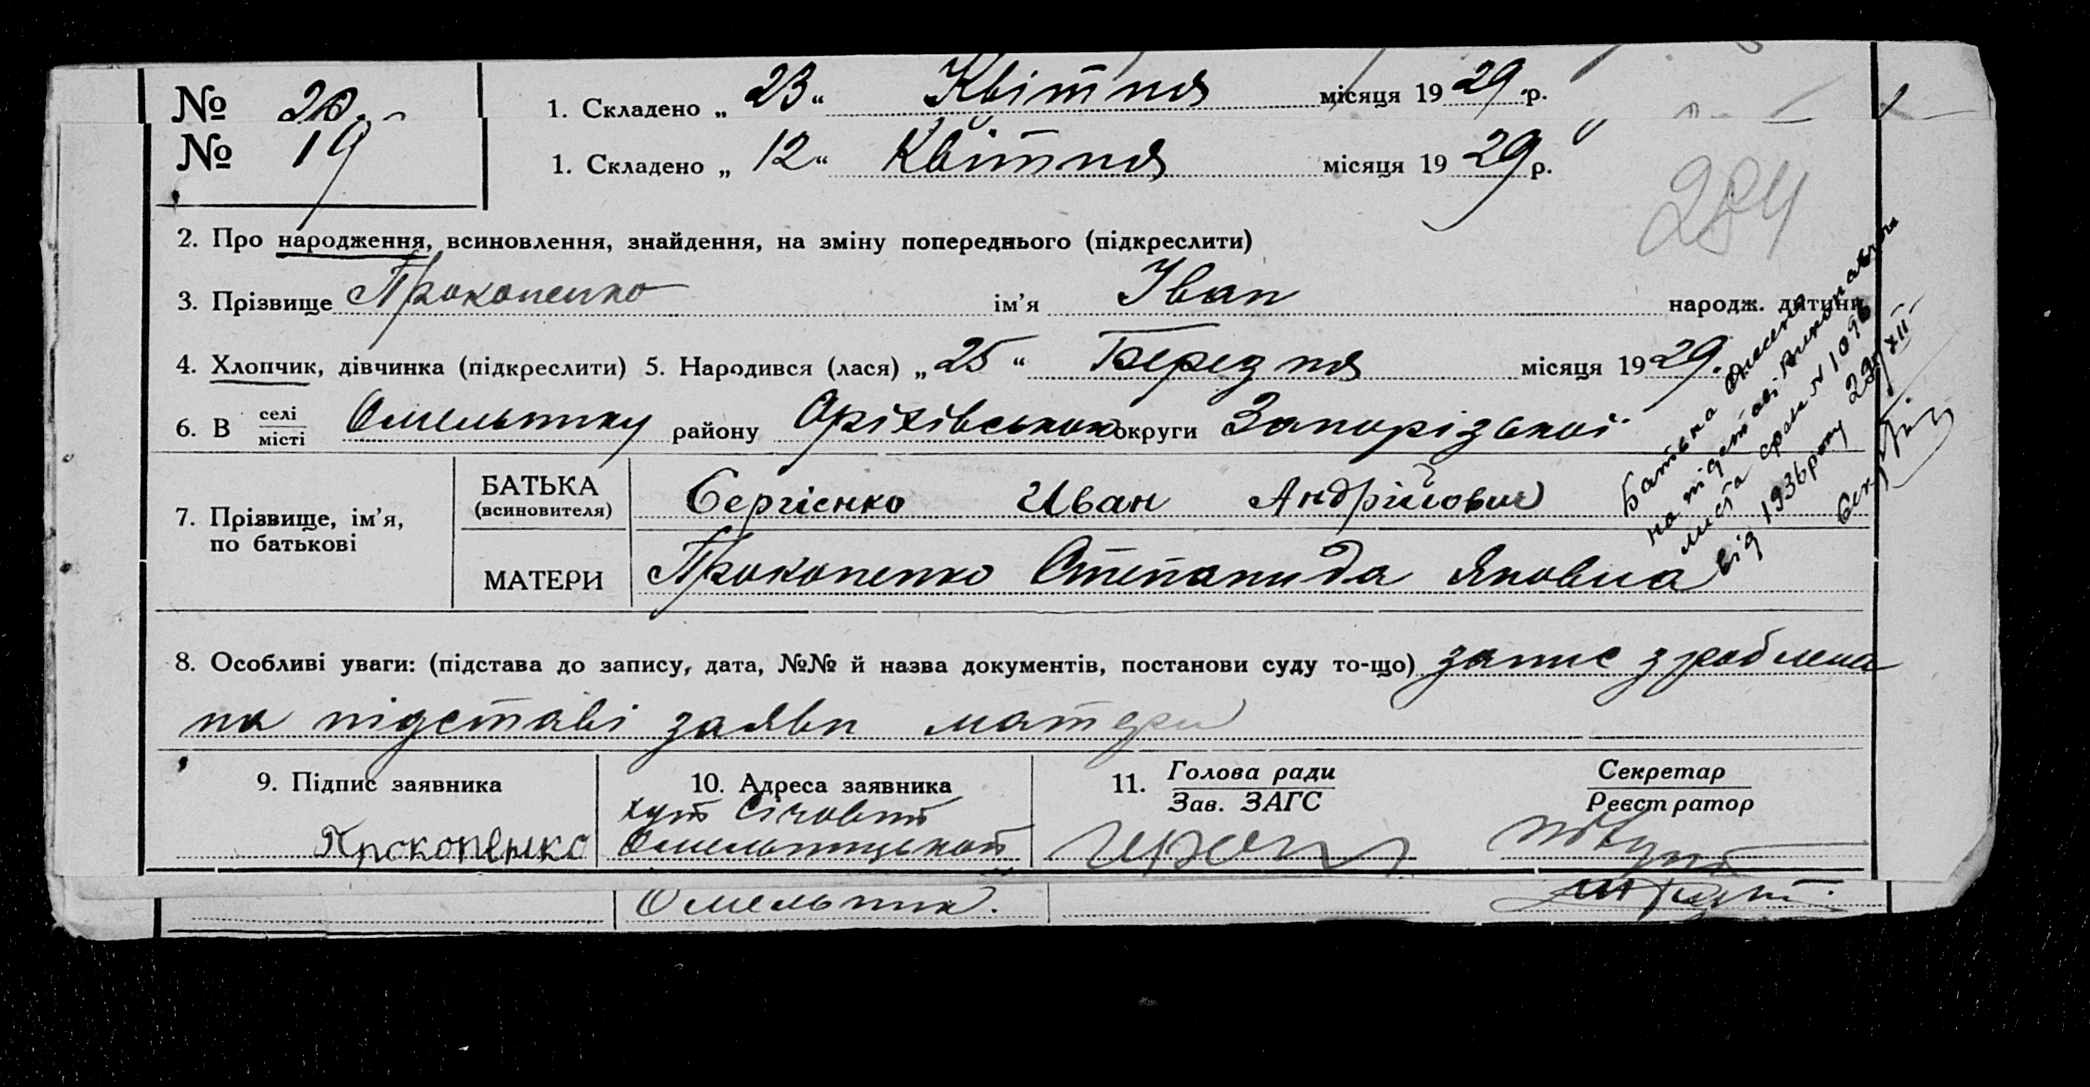 № 20. 1. Складено „23“ Квітня місяця 1929 р.
№ 19 1. Складено „12“ Квітня місяця 1929 р.
284
2. Про народження, всиновлення, знайдення, на зміну попереднього (підкреслити)
3. Прізвище Прокопенко ім’я Іван народж. дитини
4. Хлопчик, дівчинка (підкреслити) 5. Народився (лася) „25“ Березня місяця 1929.
6. В селі/місті Омельнику району Оріхівського округи Запорізької
7. Прізвище, ім’я, по батькові
БАТЬКА (всиновителя) Сергієнко Иван Андрійович
МАТЕРИ Прокопенко Степанида Яковна
Батька внесено
на підставі виконавчого
листа справ № 1093
від 1936 року 29/XII
Секр.
8. Особливі уваги: (підстава до запису, дата, №№ й назва документів, постанови суду то-що) запис зроблена
на підставі заяви матери
9. Підпис заявника 10. Адреса заявника 11. Голова ради/Зав. ЗАГС Секретар/Реєстратор
хут Січовит
Прокопенко Омельницької
Омельник.